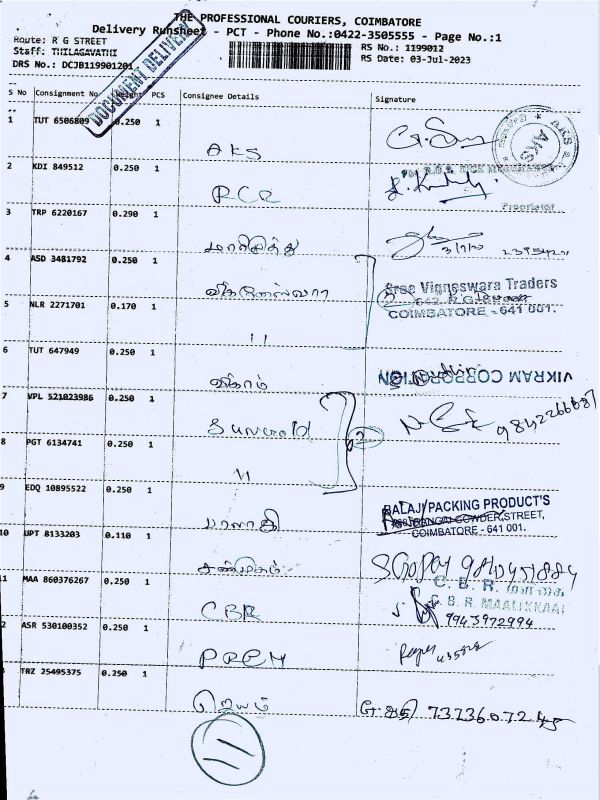 THE PROFESSIONAL COURIERS, COIMBATORE
Delivery Runsheet - PCT - Phone No.:0422-3505555 - Page No.:1
Route: R G STREET
Staff: THILAGAVATHI
DRS No.: DCJB119901201
RS No.: 1199012
RS Date: 03-Jul-2023
DOCUMENT DELIVERY
S No Consignment No Weight PCS Consignee Details Signature
1 TUT 6506809 0.250 1
AKS
AKS
2 KDI 849512 0.250 1
RCR
Proprietor
3 TRP 6220167 0.290 1
மாரிமுத்து
3/7/23
4 ASD 3481792 0.250 1
விக்னேஸ்வரா
Sree Vigneswara Traders
642, R.G. Street
COIMBATORE - 641 001.
5 NLR 2271701 0.170 1
11
6 TUT 647949 0.250 1
விக்ரம்
VIKRAM CORPORATION
7 VPL 521023986 0.250 1
9842266687
8 PGT 6134741 0.250 1
11
9 EDQ 10895522 0.250 1
பாலாஜி
BALAJI PACKING PRODUCT'S
COIMBATORE - 641 001.
10 UPT 8133203 0.110 1
சண்முகம்
SGopay 9840451884
11 MAA 860376267 0.250 1
CBR
C. B. R. மாளிகை
C. B. R. MAALIKKAAI
9943972994
2 ASR 530100352 0.250 1
PREM
TRZ 25495375 0.250 1
ஜெயம்
11